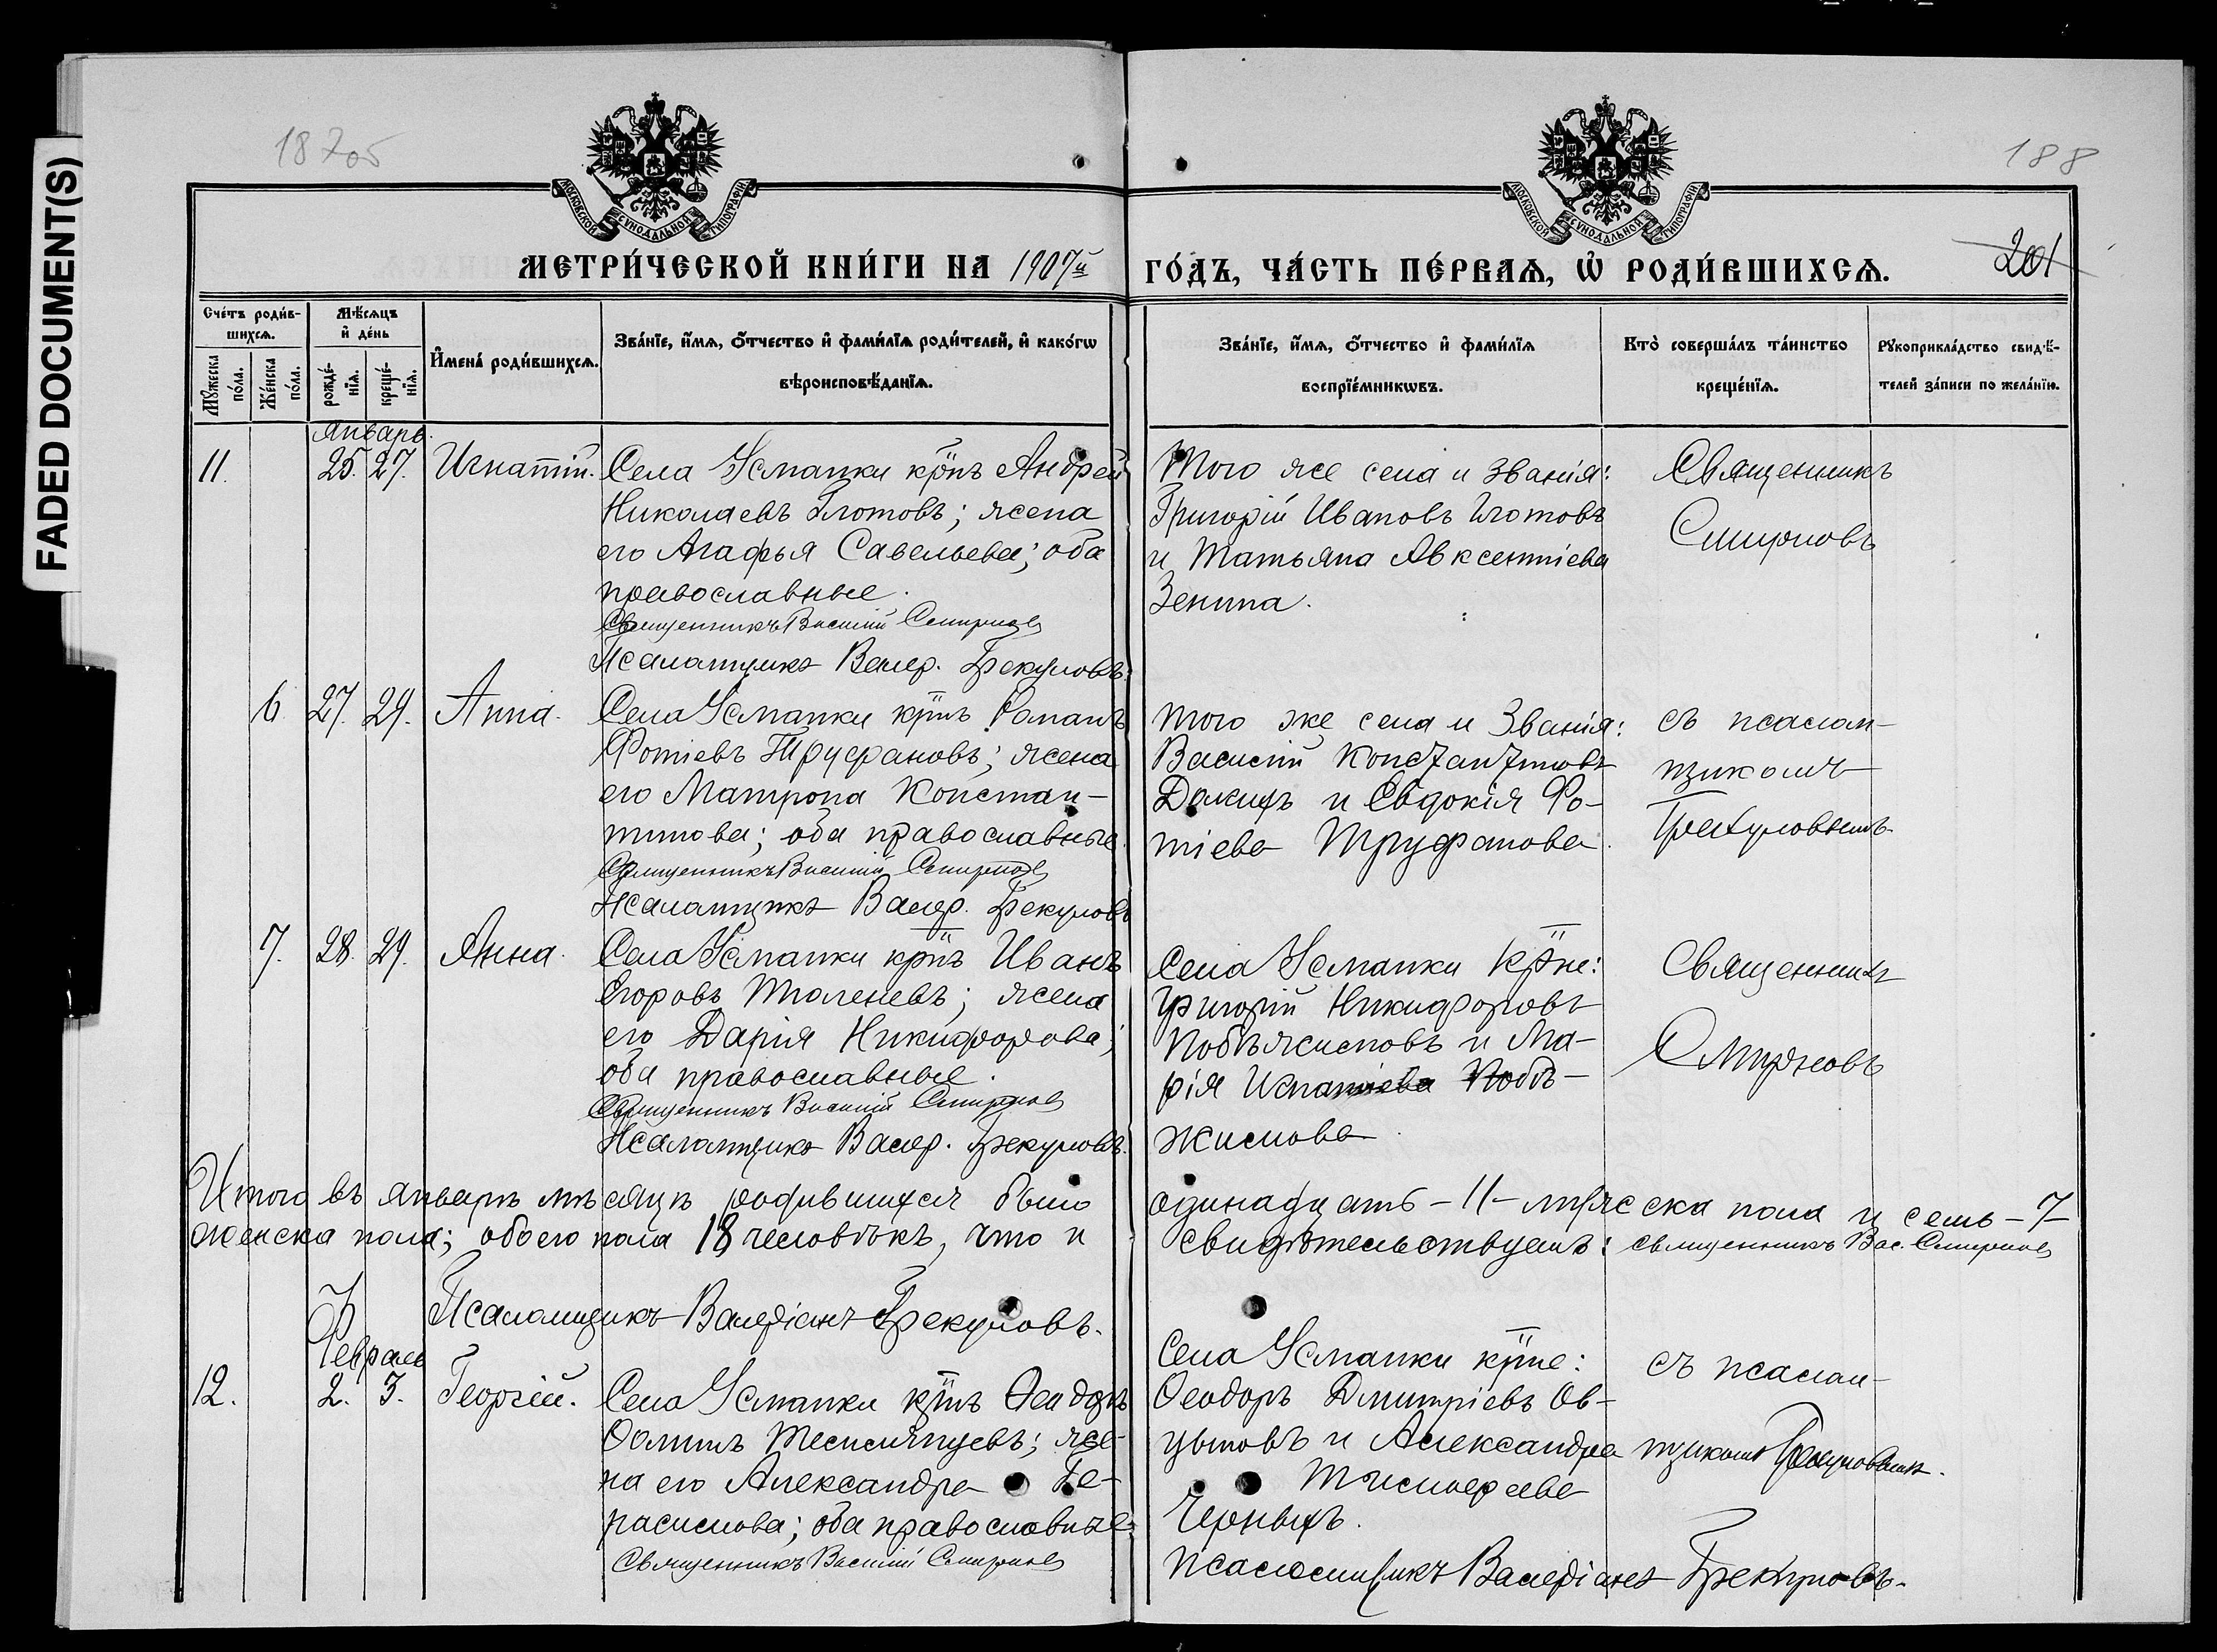 FADED DOCUMENT(S)
187об
188
МОСКОВСКОЙ СѴНОДАЛЬНОЙ ТИПОГРАФІИ
МОСКОВСКОЙ СѴНОДАЛЬНОЙ ТИПОГРАФІИ
201
МЕТРИ́ЧЕСКОЙ КНИ́ГИ НА 1907й
ГО́ДЪ, ЧА́СТЬ ПЕ́РВАЯ, Ѡ҆ РОДИ́ВШИХСЯ.
Сче́тъ роди́в-
шихся.
Мѣ́сяцъ
и҆ де́нь
Мꙋ́жеска по́ла.
Же́нска по́ла.
рожде́-нїя.
креще́-нїя.
И҆мена́ роди́вшихся.
Зва́нїе, и҆́мя, ѻ҆́тчество и҆ фами́лїя роди́телей, и҆ како́гѡ
вѣроисповѣ́данїя.
Зва́нїе, и҆́мя, ѻ҆́тчество и҆ фами́лїя
воспрїе́мникѡвъ.
Кто̀ соверша́лъ та́инство
креще́нїя.
Рꙋкоприкла́дство свидѣ́-
телей за́писи по жела́нїю.
Январь.
11. 25. 27. Игнатій. Села Усманки крнъ Андрей
Николаевъ Глотовъ; жена
его Агафья Савельева; оба
православные.
Священникъ Василій Смирновъ
Псаломщикъ Валер. Грекуловъ.
Того же села и званія:
Григорій Ивановъ Глотовъ
и Татьяна Авксентіева
Зенина.
Священникъ
Смирновъ
6. 27. 29. Анна. Села Усманки крнъ Романъ
Фотіевъ Труфановъ; жена
его Матрона Констан-
тинова; оба православные.
Священникъ Василій Смирновъ
Псаломщикъ Валер. Грекуловъ
того же села и званія:
Василій Константиновъ
и Евдокія Фо-
тіева Труфанова.
съ псалом-
щикомъ
Грекуловымъ.
7. 28. 29. Анна. Села Усманки крнъ Иванъ
Егоровъ Тюленевъ; жена
его Дарія Никифорова;
оба православные.
Священникъ Василій Смирновъ
Псаломщикъ Валер. Грекуловъ.
Села Усманки крне:
Григорій Никифоровъ
и Ма-
рія Игнатіева
Священникъ
Смирновъ
Итого въ январѣ мѣсяцѣ родившихся было
одинадцать - 11 - мужеска пола и семь - 7 -
женска пола; обоего пола 18 человѣкъ, что и
свидѣтельствуемъ: священникъ Вас. Смирновъ
Псаломщикъ Валеріанъ Грекуловъ.
Февраль
12. 2. 3. Георгій. Села Усманки крнъ Ѳеодоръ
Ѳоминъ; же-
на его Александра Ге-
расимова; оба православные
Священникъ Василій Смирновъ
Села Усманки крне:
Ѳеодоръ Дмитріевъ Ов-
и Александра
Черныхъ.
съ псалом-
щикомъ Грекуловымъ.
псаломщикъ Валеріанъ Грекуловъ.